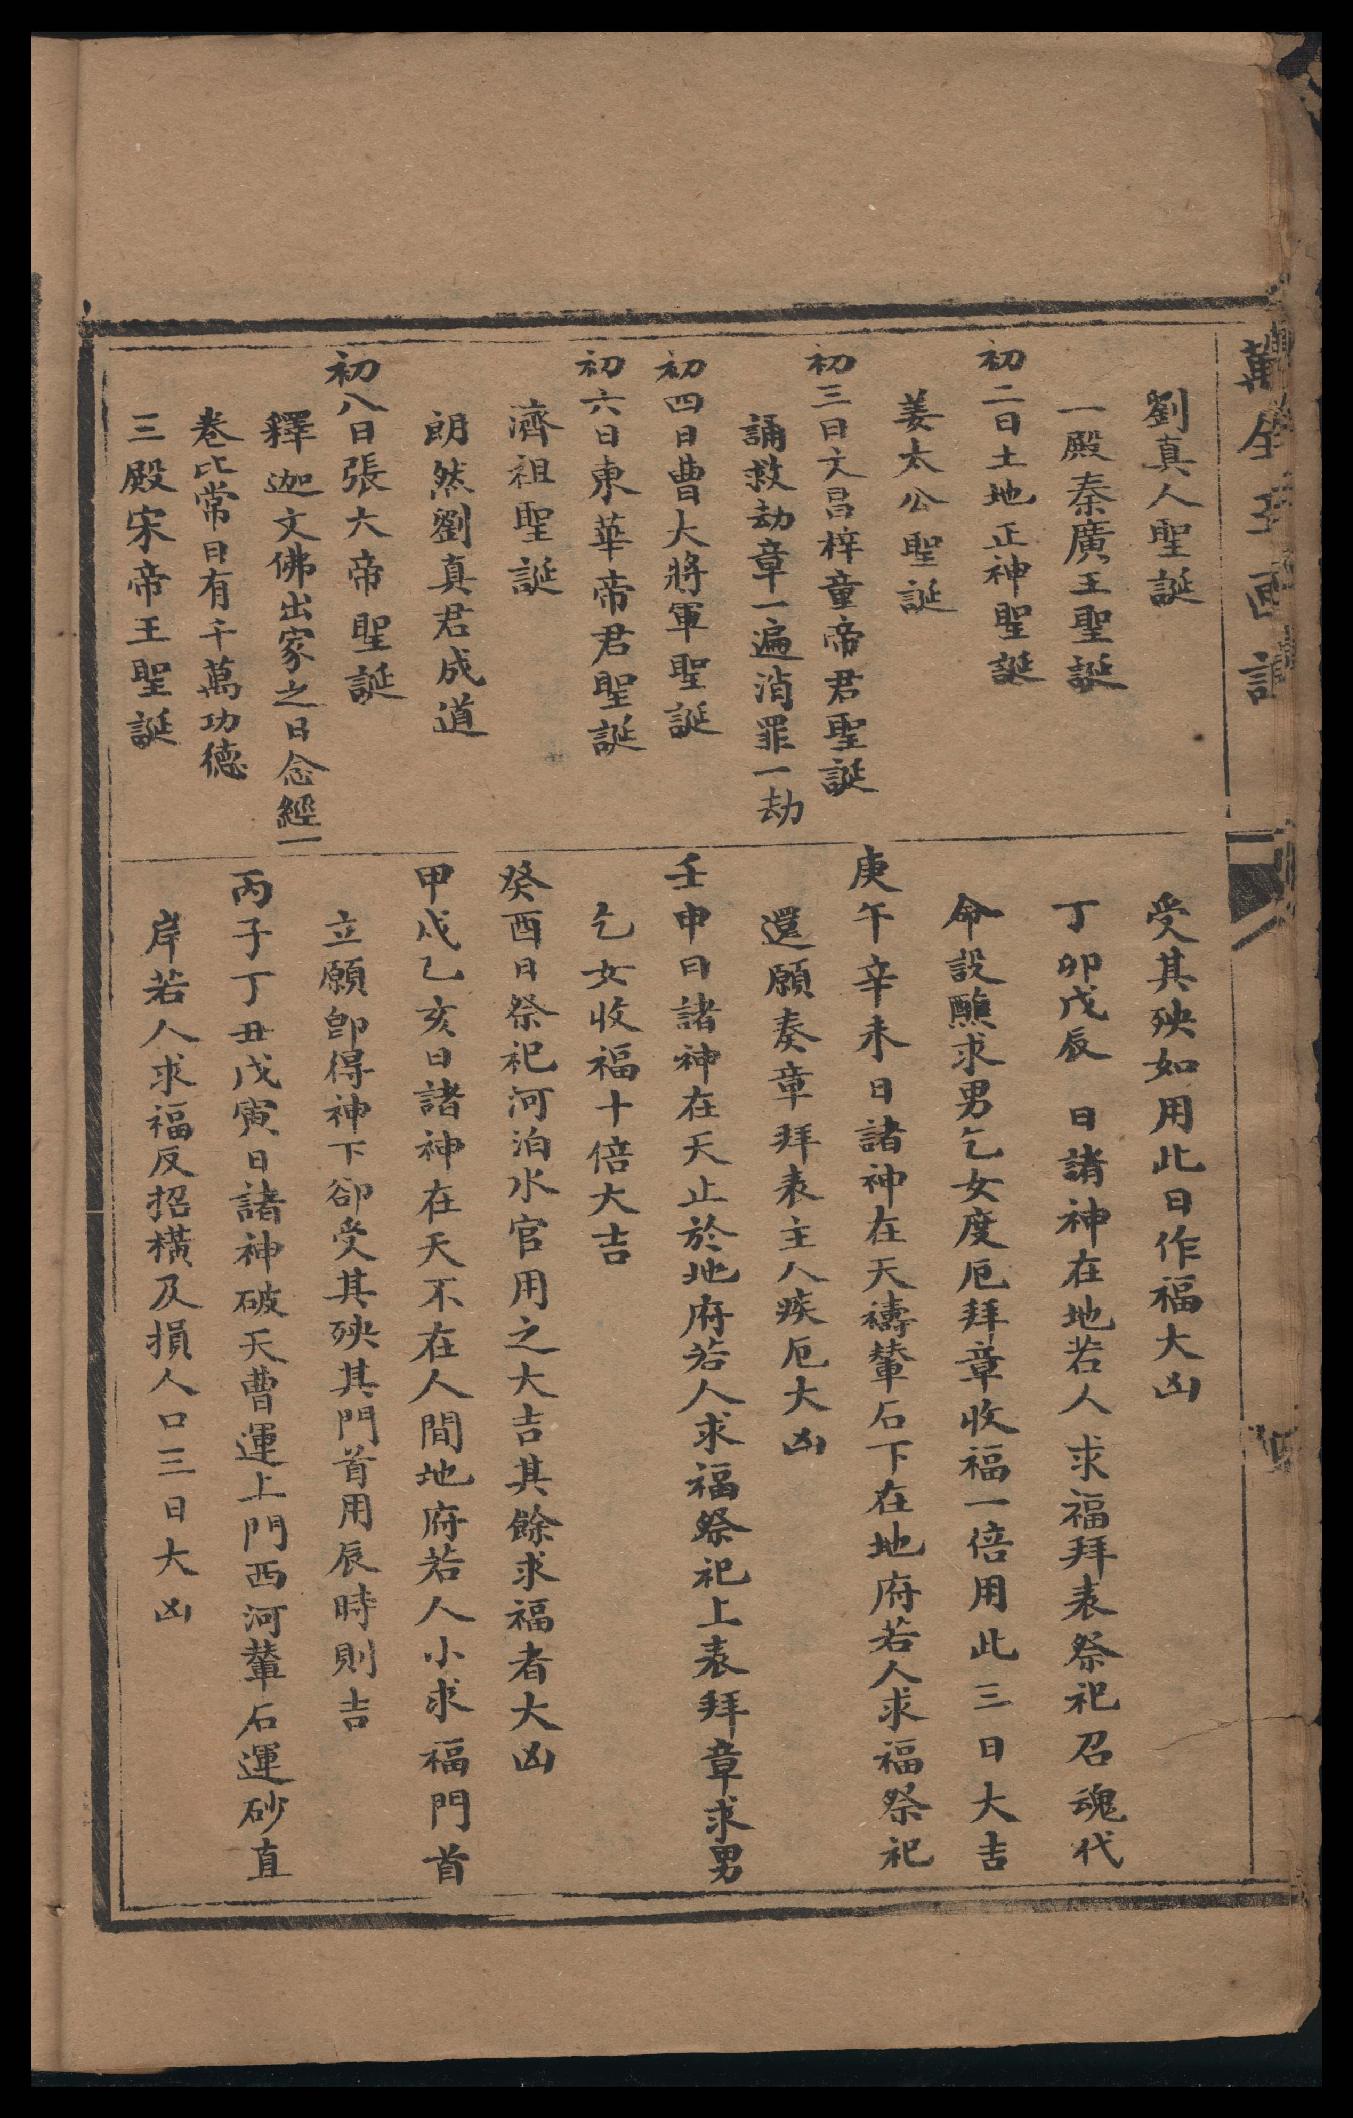 劉真人聖誕
一殿秦廣王聖誕
初二日土地正神聖誕
姜太公聖誕
初三日文昌梓童帝君聖誕
誦救劫章一遍消罪一劫
初四日曹大將軍聖誕
初六日東華帝君聖誕
濟祖聖誕
朗然劉真君成道
初八日張六帝聖誕
釋迦文佛出家之日念經一
卷比常日有千萬功德
三殿宋帝王聖誕
受其殃如用此日作福大凶
丁卯戊辰　日諸神在地若人求福拜表祭祀召魂代
命設醮求男乞女度厄拜章收福一倍用此三日大吉
庚午辛未日諸神在天禱輦石下在地府若人求福祭祀
還願奏章拜表主人疾厄大凶
壬申日諸神在天止於地府若人求福祭祀上表拜章求男
乞女收福十倍大吉
癸酉日祭祀河泊水官用之大吉其餘求福者大凶
甲戌乙亥日諸神在天不在人間地府若人小求福門首
立願卽得神下卻受其殃其門首用辰時則吉
丙子丁丑戊寅日諸神破天曹運上門西河輦石運砂直
岸若人求福反招橫及損人口三日大凶